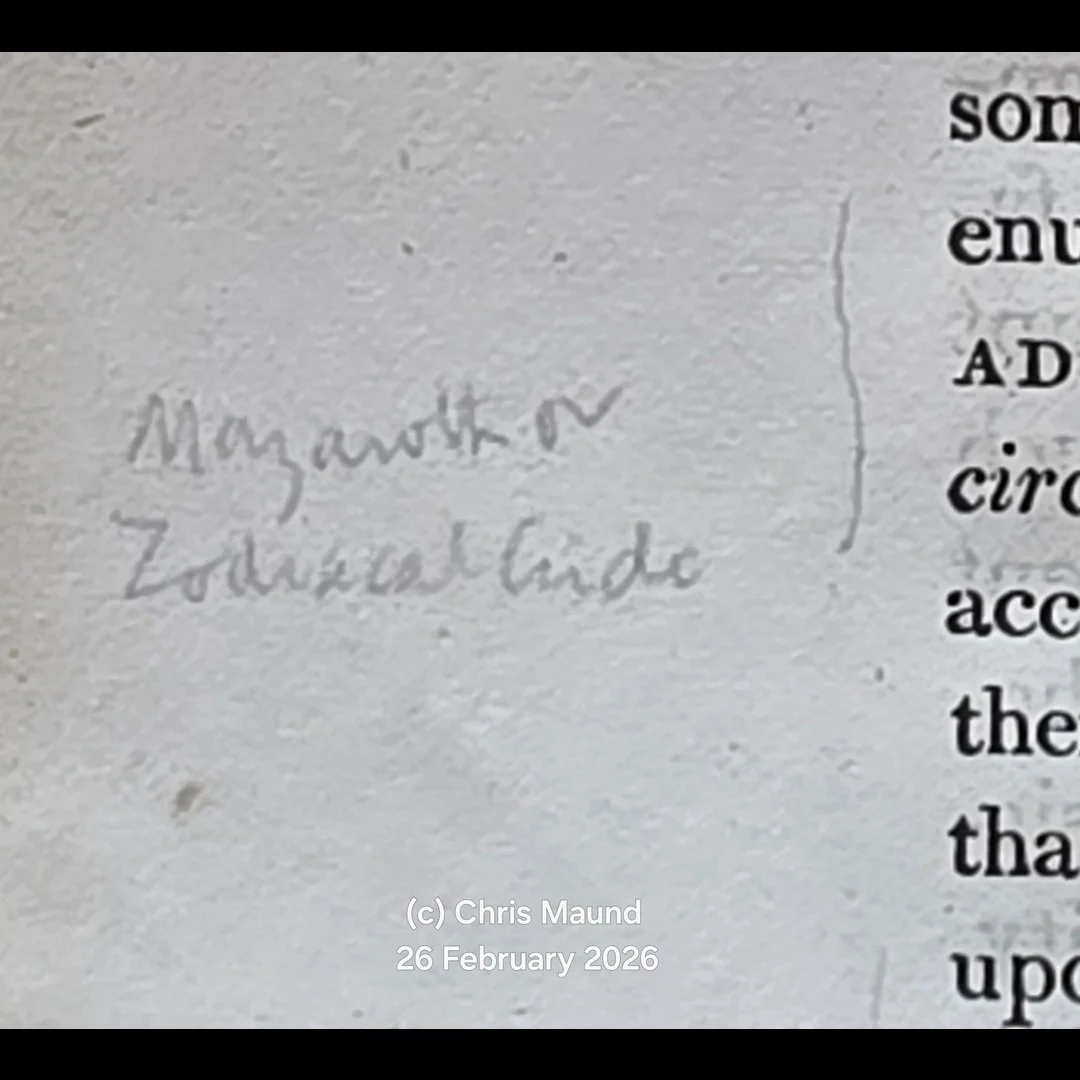 som
enu
AD
circ
Mazaroth or
Zodiacal Circle
acc
the
tha
upo
(c) Chris Maund
26 February 2026